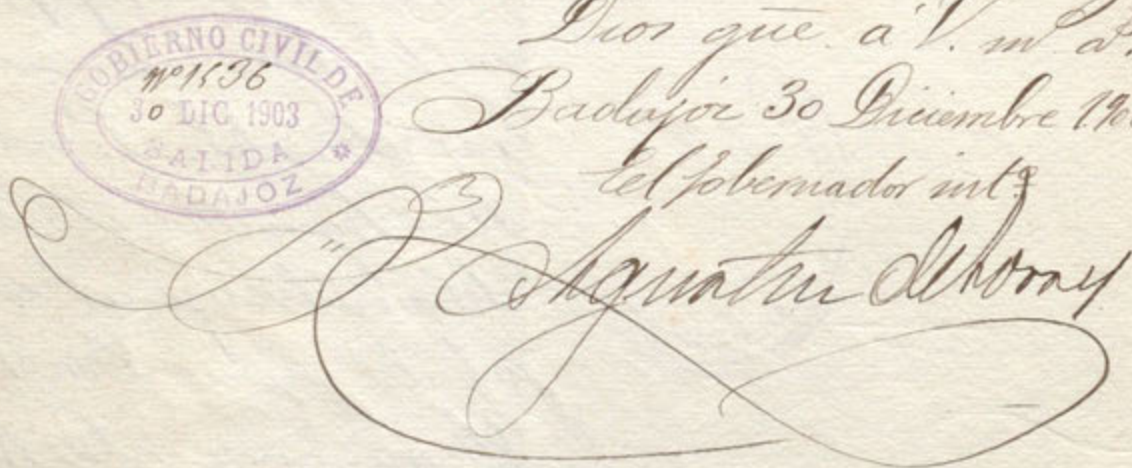 GOBIERNO CIVIL DE
Nº 1536
30 DIC 1903
SALIDA
BADAJOZ
Dios gue. á V. m.ˢ a.
Badajoz 30 Diciembre 190
El Gobernador int.º